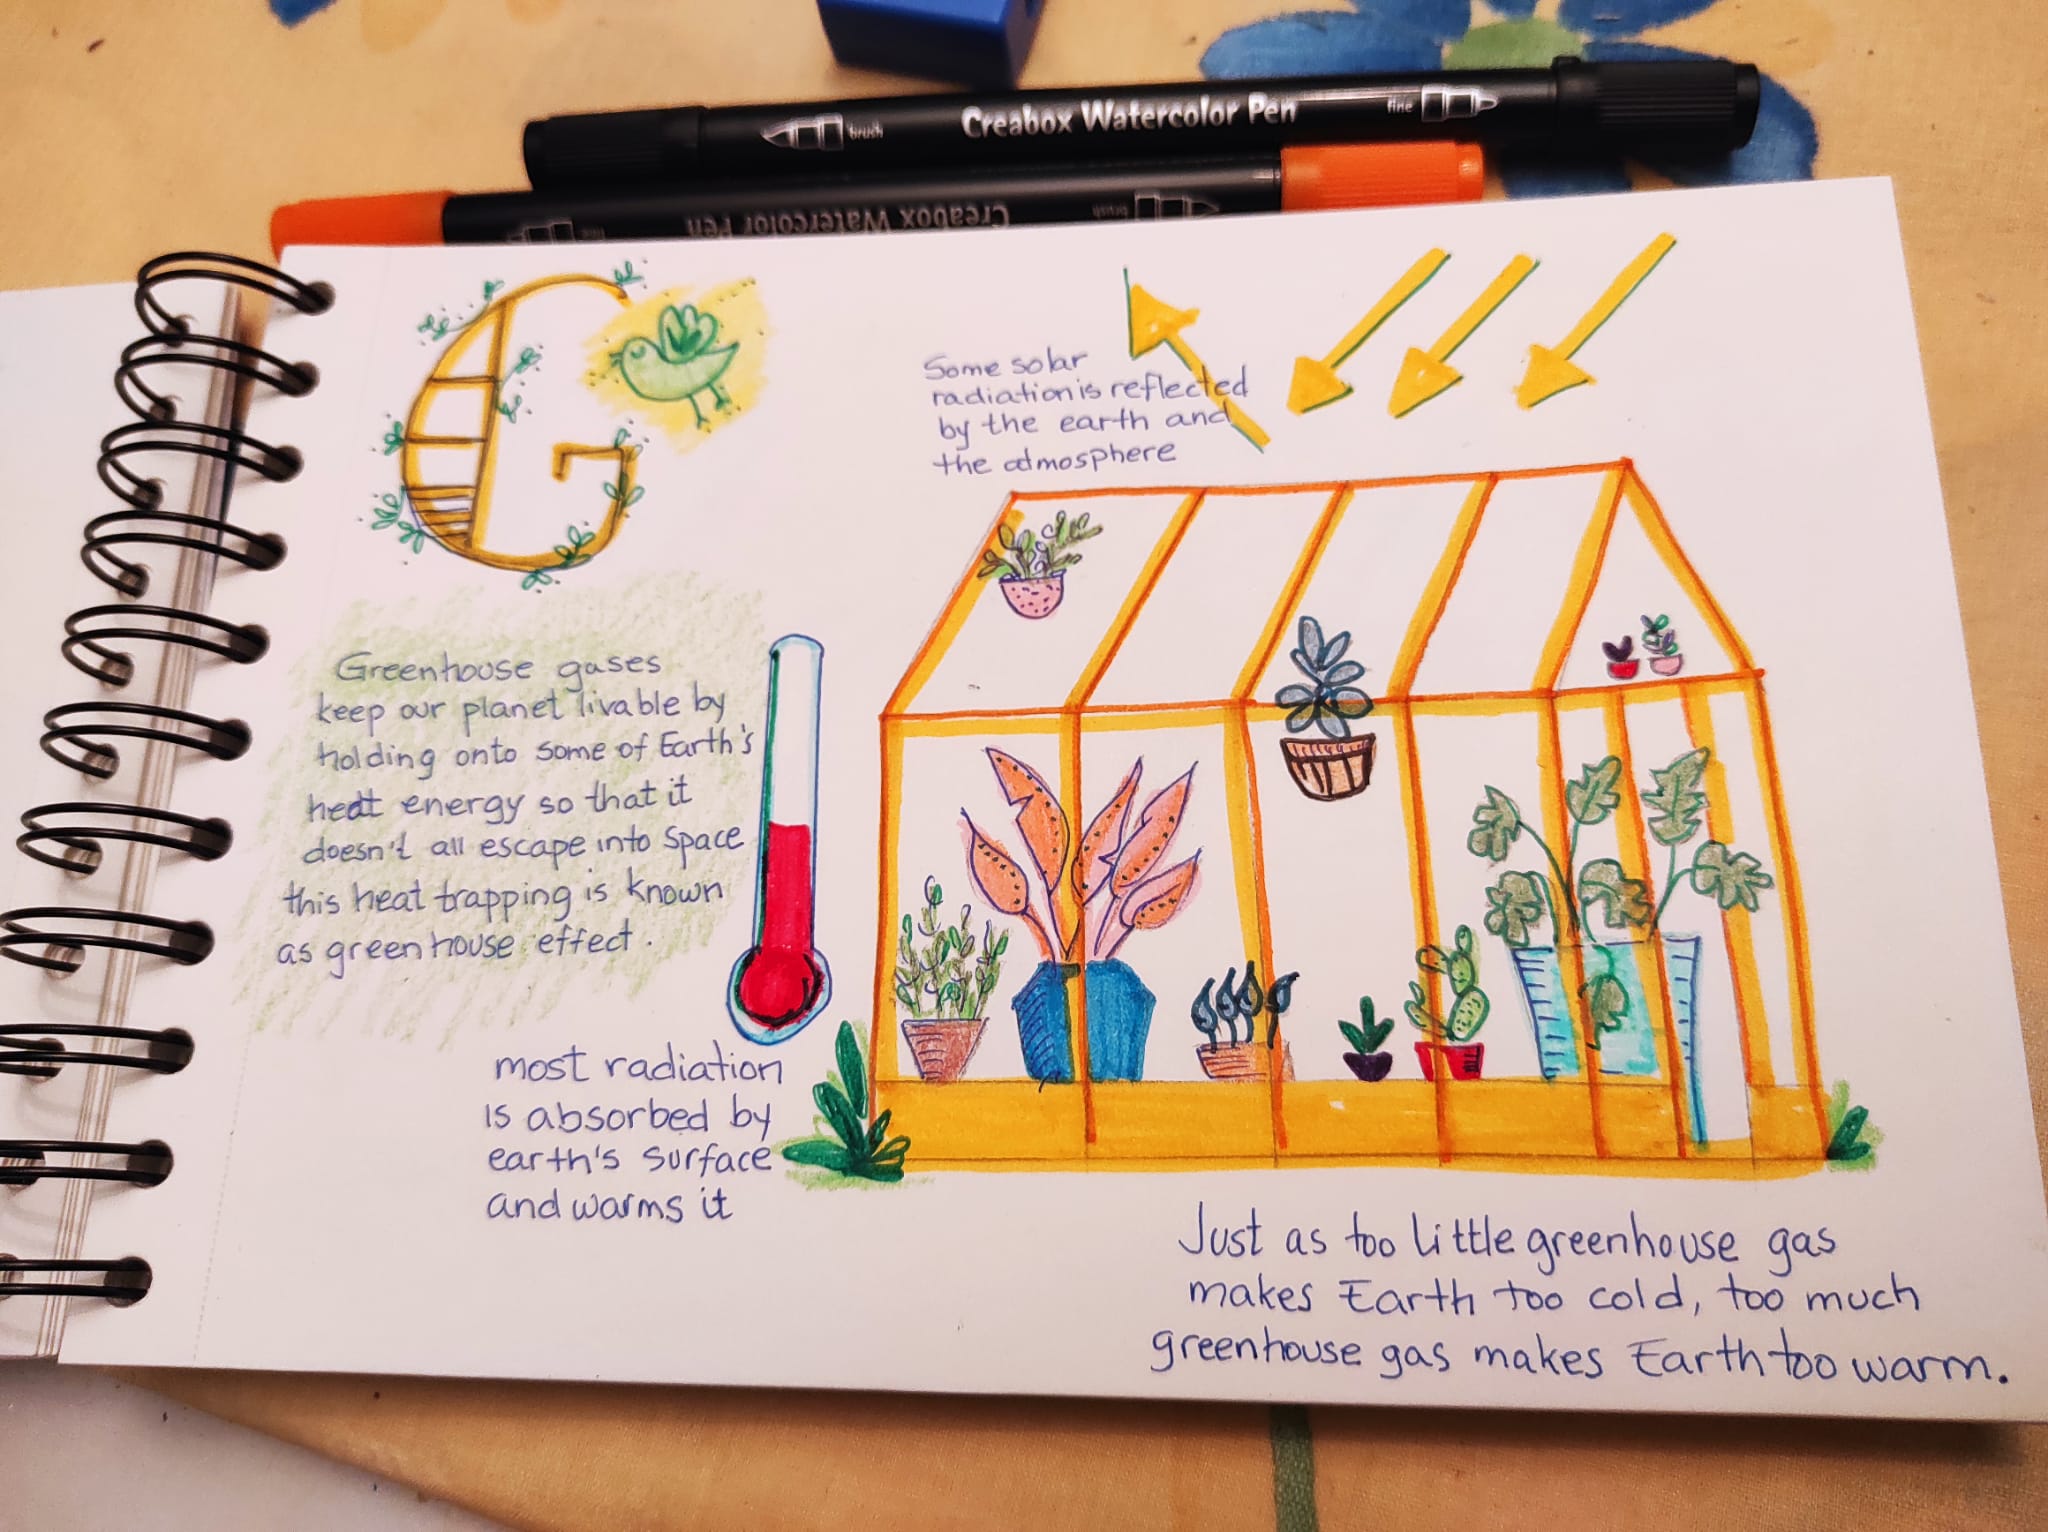 brush Creabox Watercolor Pen fine
fine Creabox Watercolor Pen brush
G
Some solar
radiation is reflected
by the earth and
the atmosphere
Greenhouse gases
keep our planet livable by
holding onto some of Earth's
heat energy so that it
doesn't all escape into space
this heat trapping is known
as greenhouse effect.
most radiation
is absorbed by
earth's surface
and warms it
Just as too little greenhouse gas
makes Earth too cold, too much
greenhouse gas makes Earth too warm.